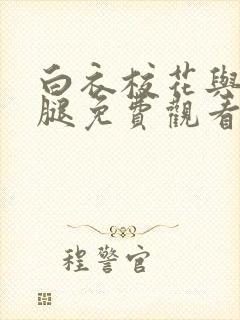 白衣校花與
腿免費觀看
程警官